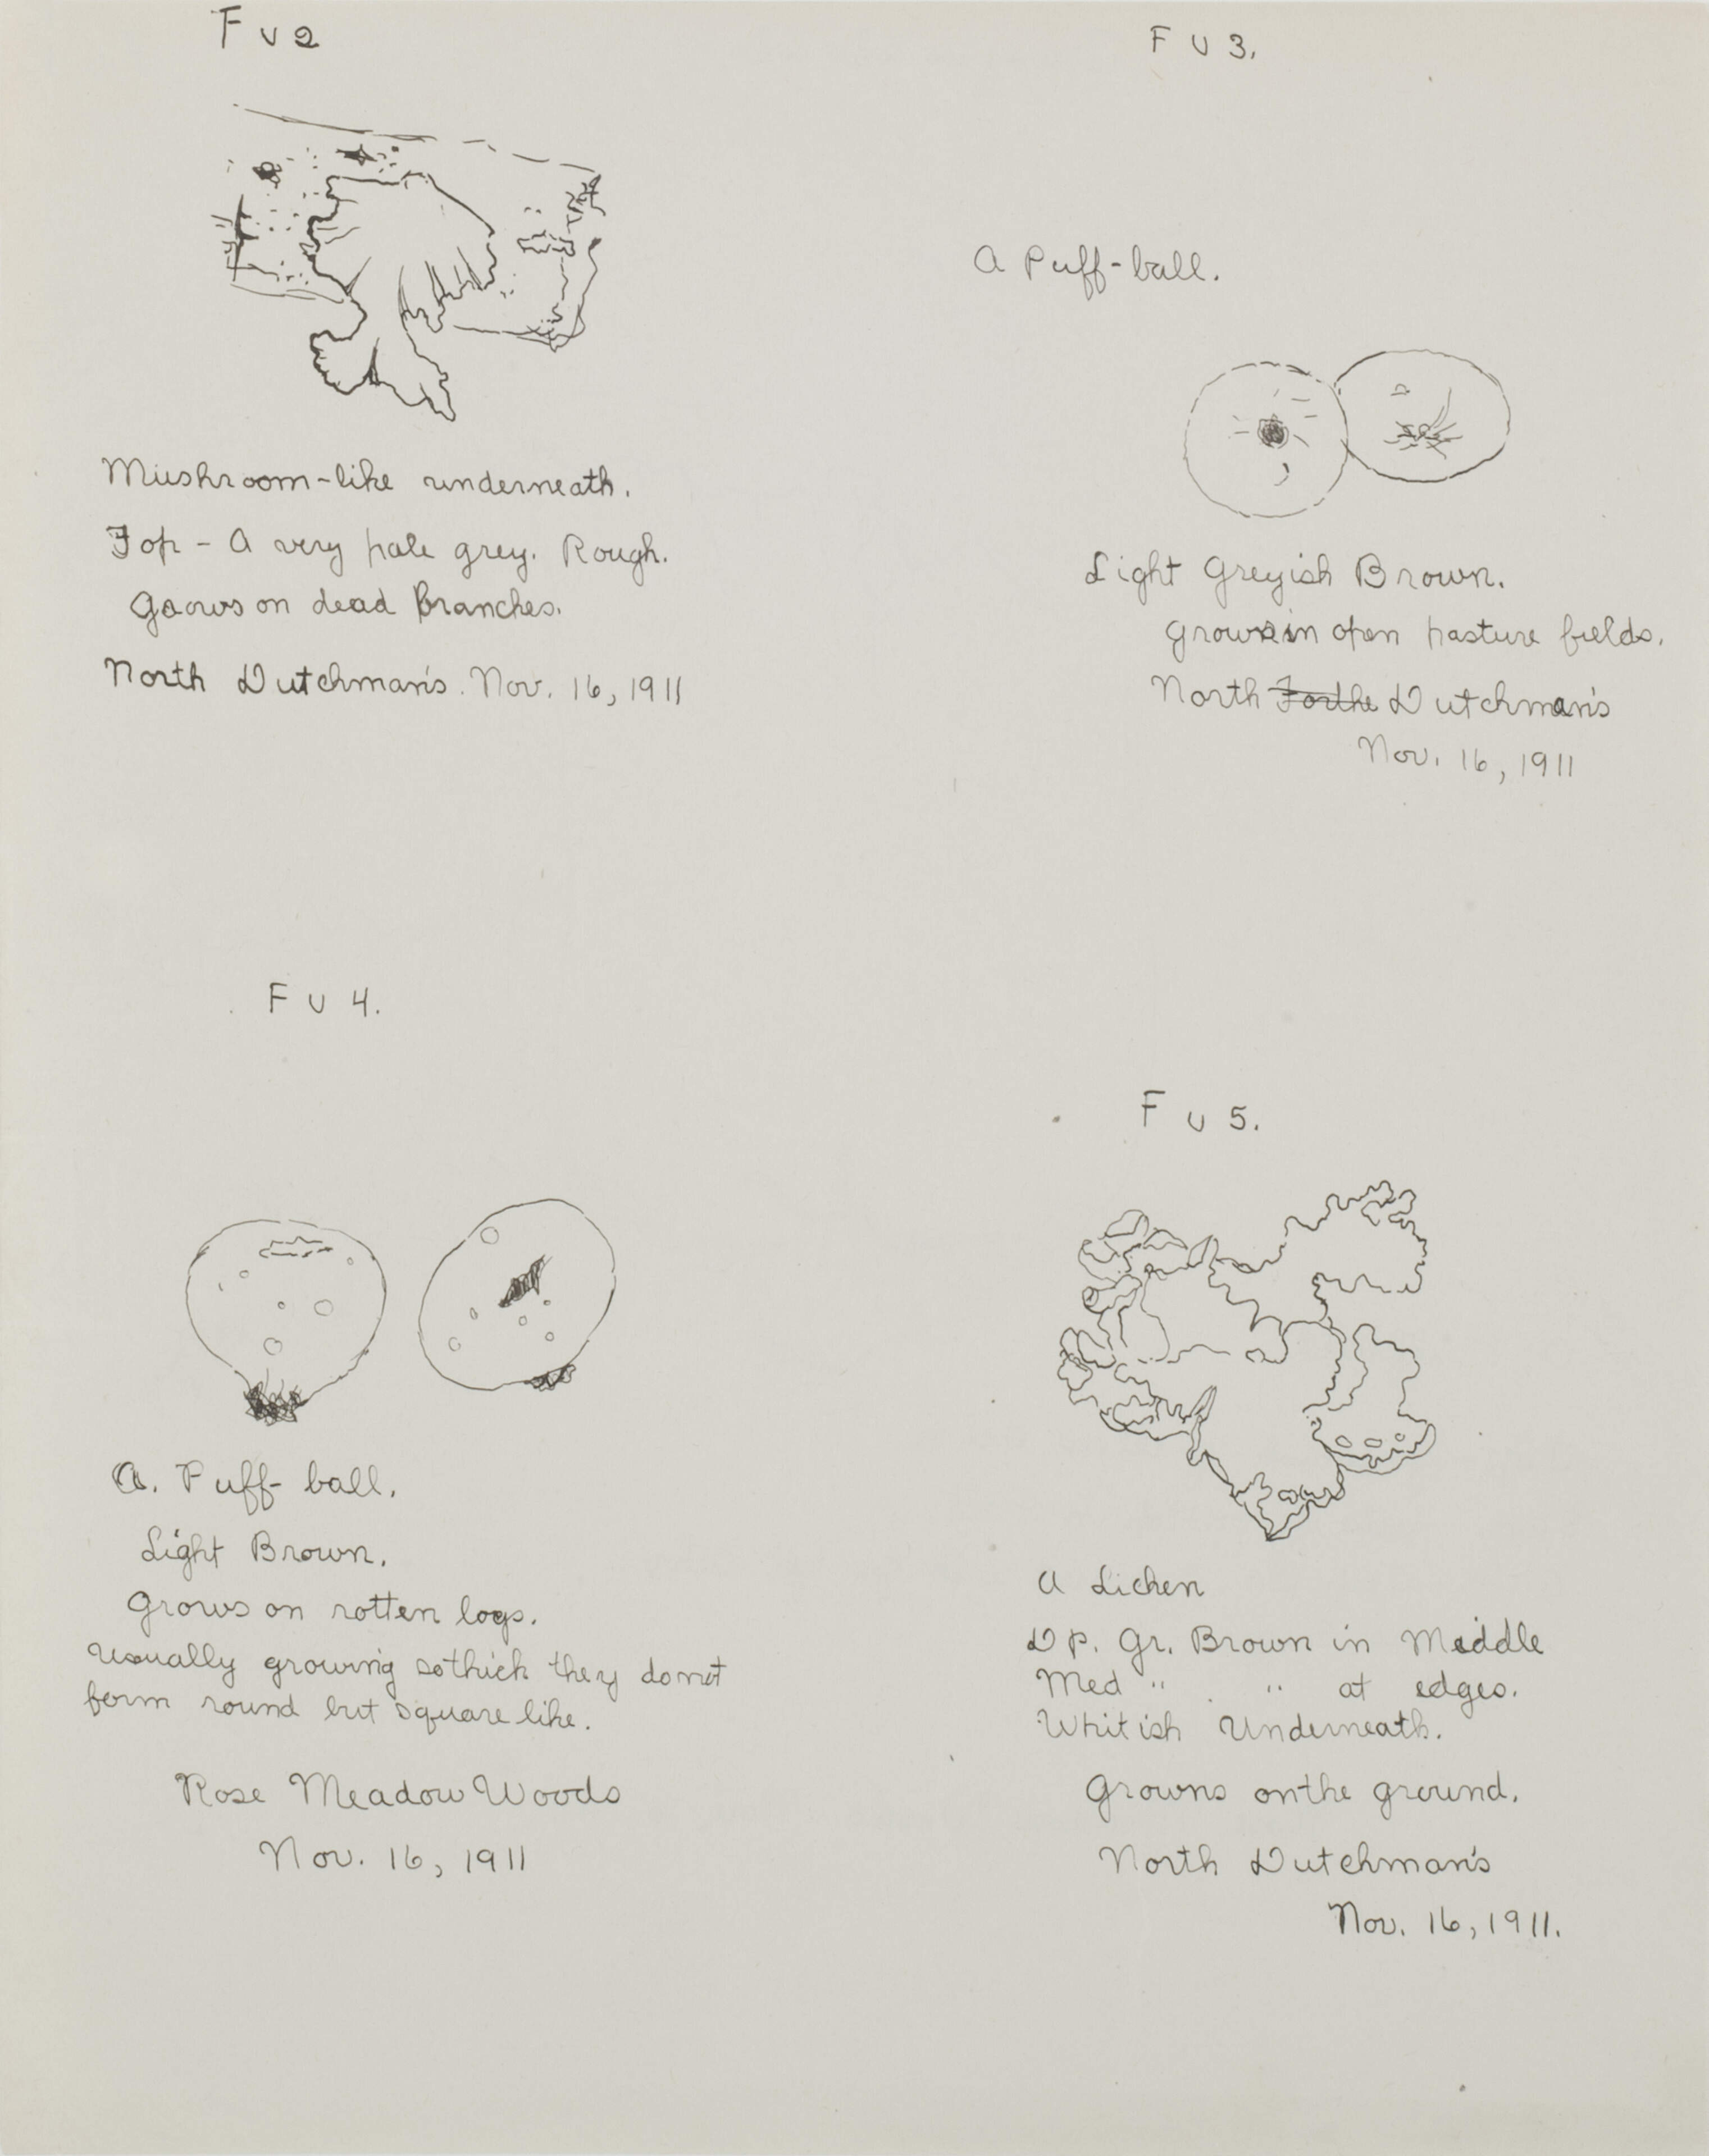 F U 2
Mushroom-like underneath.
Top - A very pale grey. Rough.
Grows on dead branches.
North Dutchman's. Nov. 16, 1911
F U 3.
A Puff-ball.
Light Greyish Brown.
Grows in open pasture fields.
North Forthe Dutchman's
Nov. 16, 1911
F U 4.
A. Puff-ball.
Light Brown.
Grows on rotten logs.
Usually growing so thick they do not
form round but square like.
Rose Meadow Woods
Nov. 16, 1911
F U 5.
A Lichen
Dp. Gr. Brown in Middle
Med " . " at edges.
Whitish Underneath.
Growns on the ground.
North Dutchman's
Nov. 16, 1911.